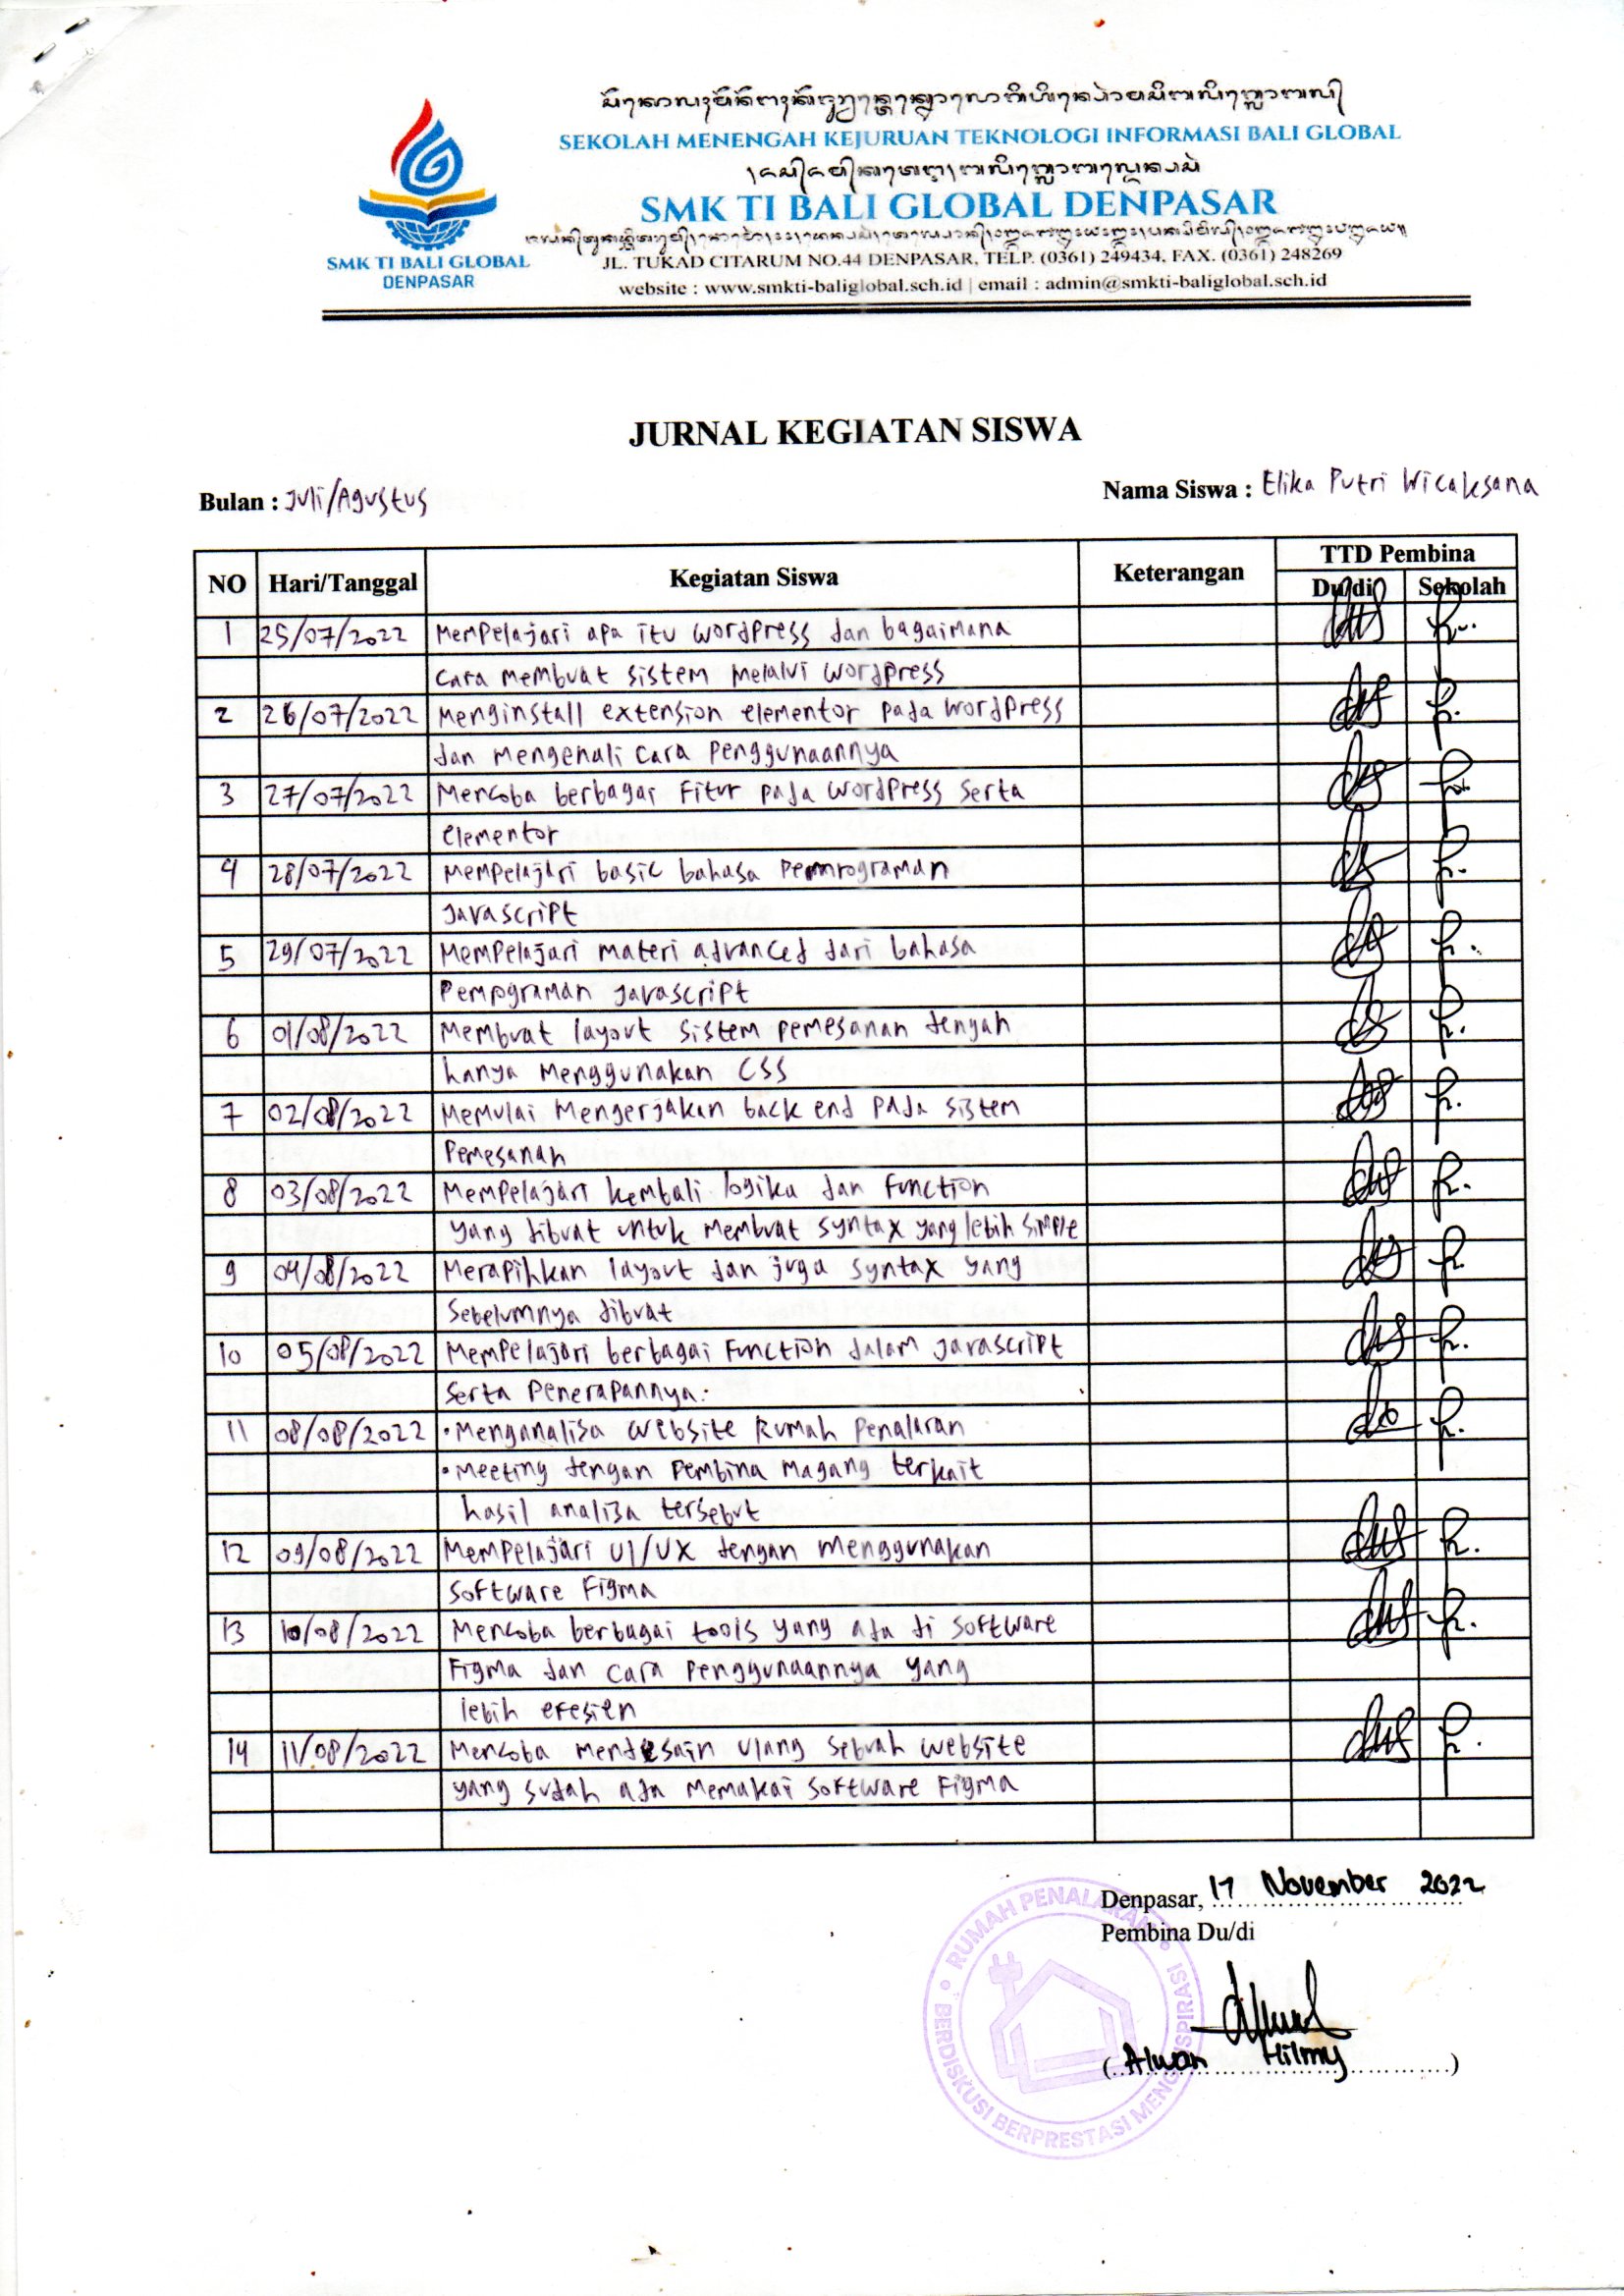 SEKOLAH MENENGAH KEJURUAN TEKNOLOGI INFORMASI BALI GLOBAL
SMK TI BALI GLOBAL DENPASAR
SMK TI BALI GLOBAL
DENPASAR
JL. TUKAD CITARUM NO.44 DENPASAR, TELP. (0361) 249434, FAX. (0361) 248269
website : www.smkti-baliglobal.sch.id | email : admin@smkti-baliglobal.sch.id
JURNAL KEGIATAN SISWA
Bulan : Juli/Agustus
Nama Siswa : Elika Putri Wicaksana
NO Hari/Tanggal Kegiatan Siswa Keterangan TTD Pembina
Du/di Sekolah
1 25/07/2022 Mempelajari apa itu wordpress dan bagaimana
cara membuat sistem melalui wordpress
2 26/07/2022 Menginstall extension elementor pada wordpress
dan mengenali cara penggunaannya
3 27/07/2022 Mencoba berbagai fitur pada wordpress serta
elementor
4 28/07/2022 Mempelajari basic bahasa pemrograman
Javascript
5 29/07/2022 Mempelajari materi advanced dari bahasa
Pempograman Javascript
6 01/08/2022 Membuat layout sistem pemesanan dengan
hanya menggunakan CSS
7 02/08/2022 Memulai mengerjakan back end pada sistem
Pemesanan
8 03/08/2022 Mempelajari kembali logika dan function
yang dibuat untuk membuat syntax yang lebih simple
9 04/08/2022 Merapihkan layout dan juga syntax yang
sebelumnya dibuat
10 05/08/2022 Mempelajari berbagai function dalam javascript
serta penerapannya.
11 08/08/2022 • Menganalisa website Rumah Penalaran
• Meeting dengan pembina magang terkait
hasil analisa tersebut
12 09/08/2022 Mempelajari UI/UX dengan menggunakan
software Figma
13 10/08/2022 Mencoba berbagai tools yang ada di software
Figma dan cara penggunaannya yang
lebih efesien
14 11/08/2022 Mencoba mendesain ulang sebuah website
yang sudah ada memakai software Figma
Denpasar, 17 November 2022
Pembina Du/di
(Alwan Hilmy)
RUMAH PENALARAN
BERDISKUSI BERPRESTASI MENGINSPIRASI